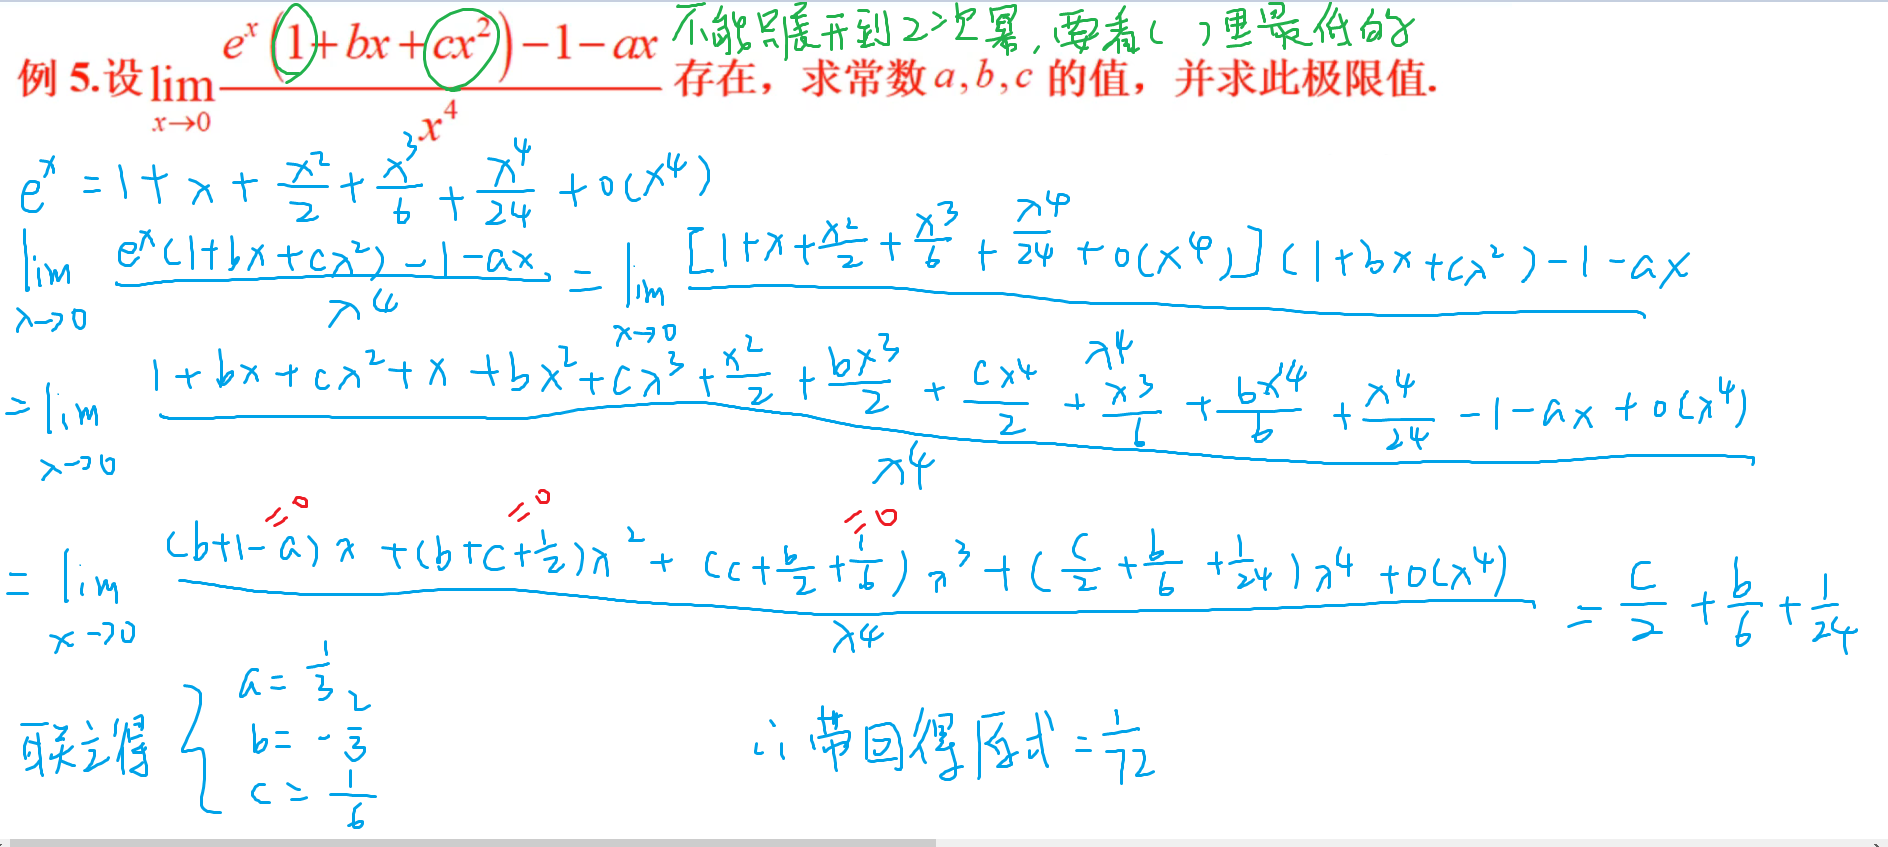 不能只展开到2次幂,要看( )里最低的
例 5.设 lim_{x→0} \frac{e^x(1+bx+cx^2)-1-ax}{x^4} 存在，求常数a,b,c 的值，并求此极限值.
e^x = 1+x+\frac{x^2}{2}+\frac{x^3}{6}+\frac{x^4}{24}+o(x^4)
lim_{x→0} \frac{e^x(1+bx+cx^2)-1-ax}{x^4} = lim_{x→0} \frac{[1+x+\frac{x^2}{2}+\frac{x^3}{6}+\frac{x^4}{24}+o(x^4)](1+bx+cx^2)-1-ax}{x^4}
= lim_{x→0} \frac{1+bx+cx^2+x+bx^2+cx^3+\frac{x^2}{2}+\frac{bx^3}{2}+\frac{cx^4}{2}+\frac{x^3}{6}+\frac{bx^4}{6}+\frac{x^4}{24}-1-ax+o(x^4)}{x^4}
=0 =0 =0
= lim_{x→0} \frac{(b+1-a)x+(b+c+\frac{1}{2})x^2+(c+\frac{b}{2}+\frac{1}{6})x^3+(\frac{c}{2}+\frac{b}{6}+\frac{1}{24})x^4+o(x^4)}{x^4} = \frac{c}{2}+\frac{b}{6}+\frac{1}{24}
联立得 { a=\frac{1}{3}
b=-\frac{2}{3}
c=\frac{1}{6}
∴ 带回得原式=\frac{1}{72}